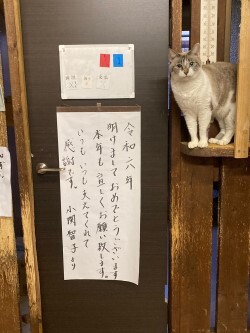 令和六年
明けましておめでとうございます
本年も宜しくお願い致します。
いつもいつも支えてくれて
感謝です。
小関智子より